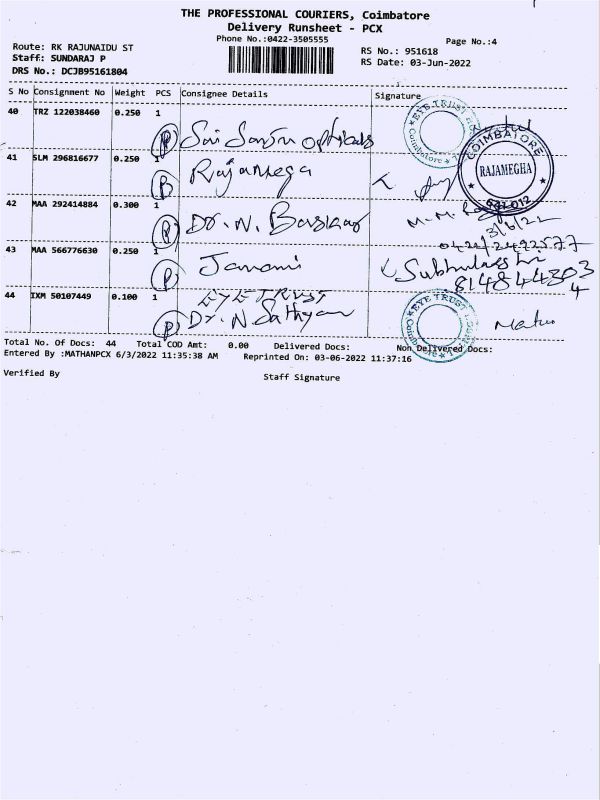 THE PROFESSIONAL COURIERS, Coimbatore
Delivery Runsheet - PCX
Phone No.:0422-3505555
Page No.:4
Route: RK RAJUNAIDU ST
Staff: SUNDARAJ P
DRS No.: DCJB95161804
RS No.: 951618
RS Date: 03-Jun-2022
S No Consignment No Weight PCS Consignee Details Signature
40 TRZ 122038460 0.250 1 Sai Opticals
EYE TRUST Coimbatore
41 SLM 296816677 0.250 1 Rajamega
COIMBATORE RAJAMEGHA 641 012
42 MAA 292414884 0.300 1 Dr. N. Baskar M.M.
3/6/22
0422/2492577
43 MAA 566776630 0.250 1 Janani
8148443034
44 IXM 50107449 0.100 1 EYE TRUST
Dr. N Sathyan
EYE TRUST
Total No. Of Docs: 44 Total COD Amt: 0.00 Delivered Docs: Non Delivered Docs:
Entered By :MATHANPCX 6/3/2022 11:35:38 AM Reprinted On: 03-06-2022 11:37:16
Verified By Staff Signature